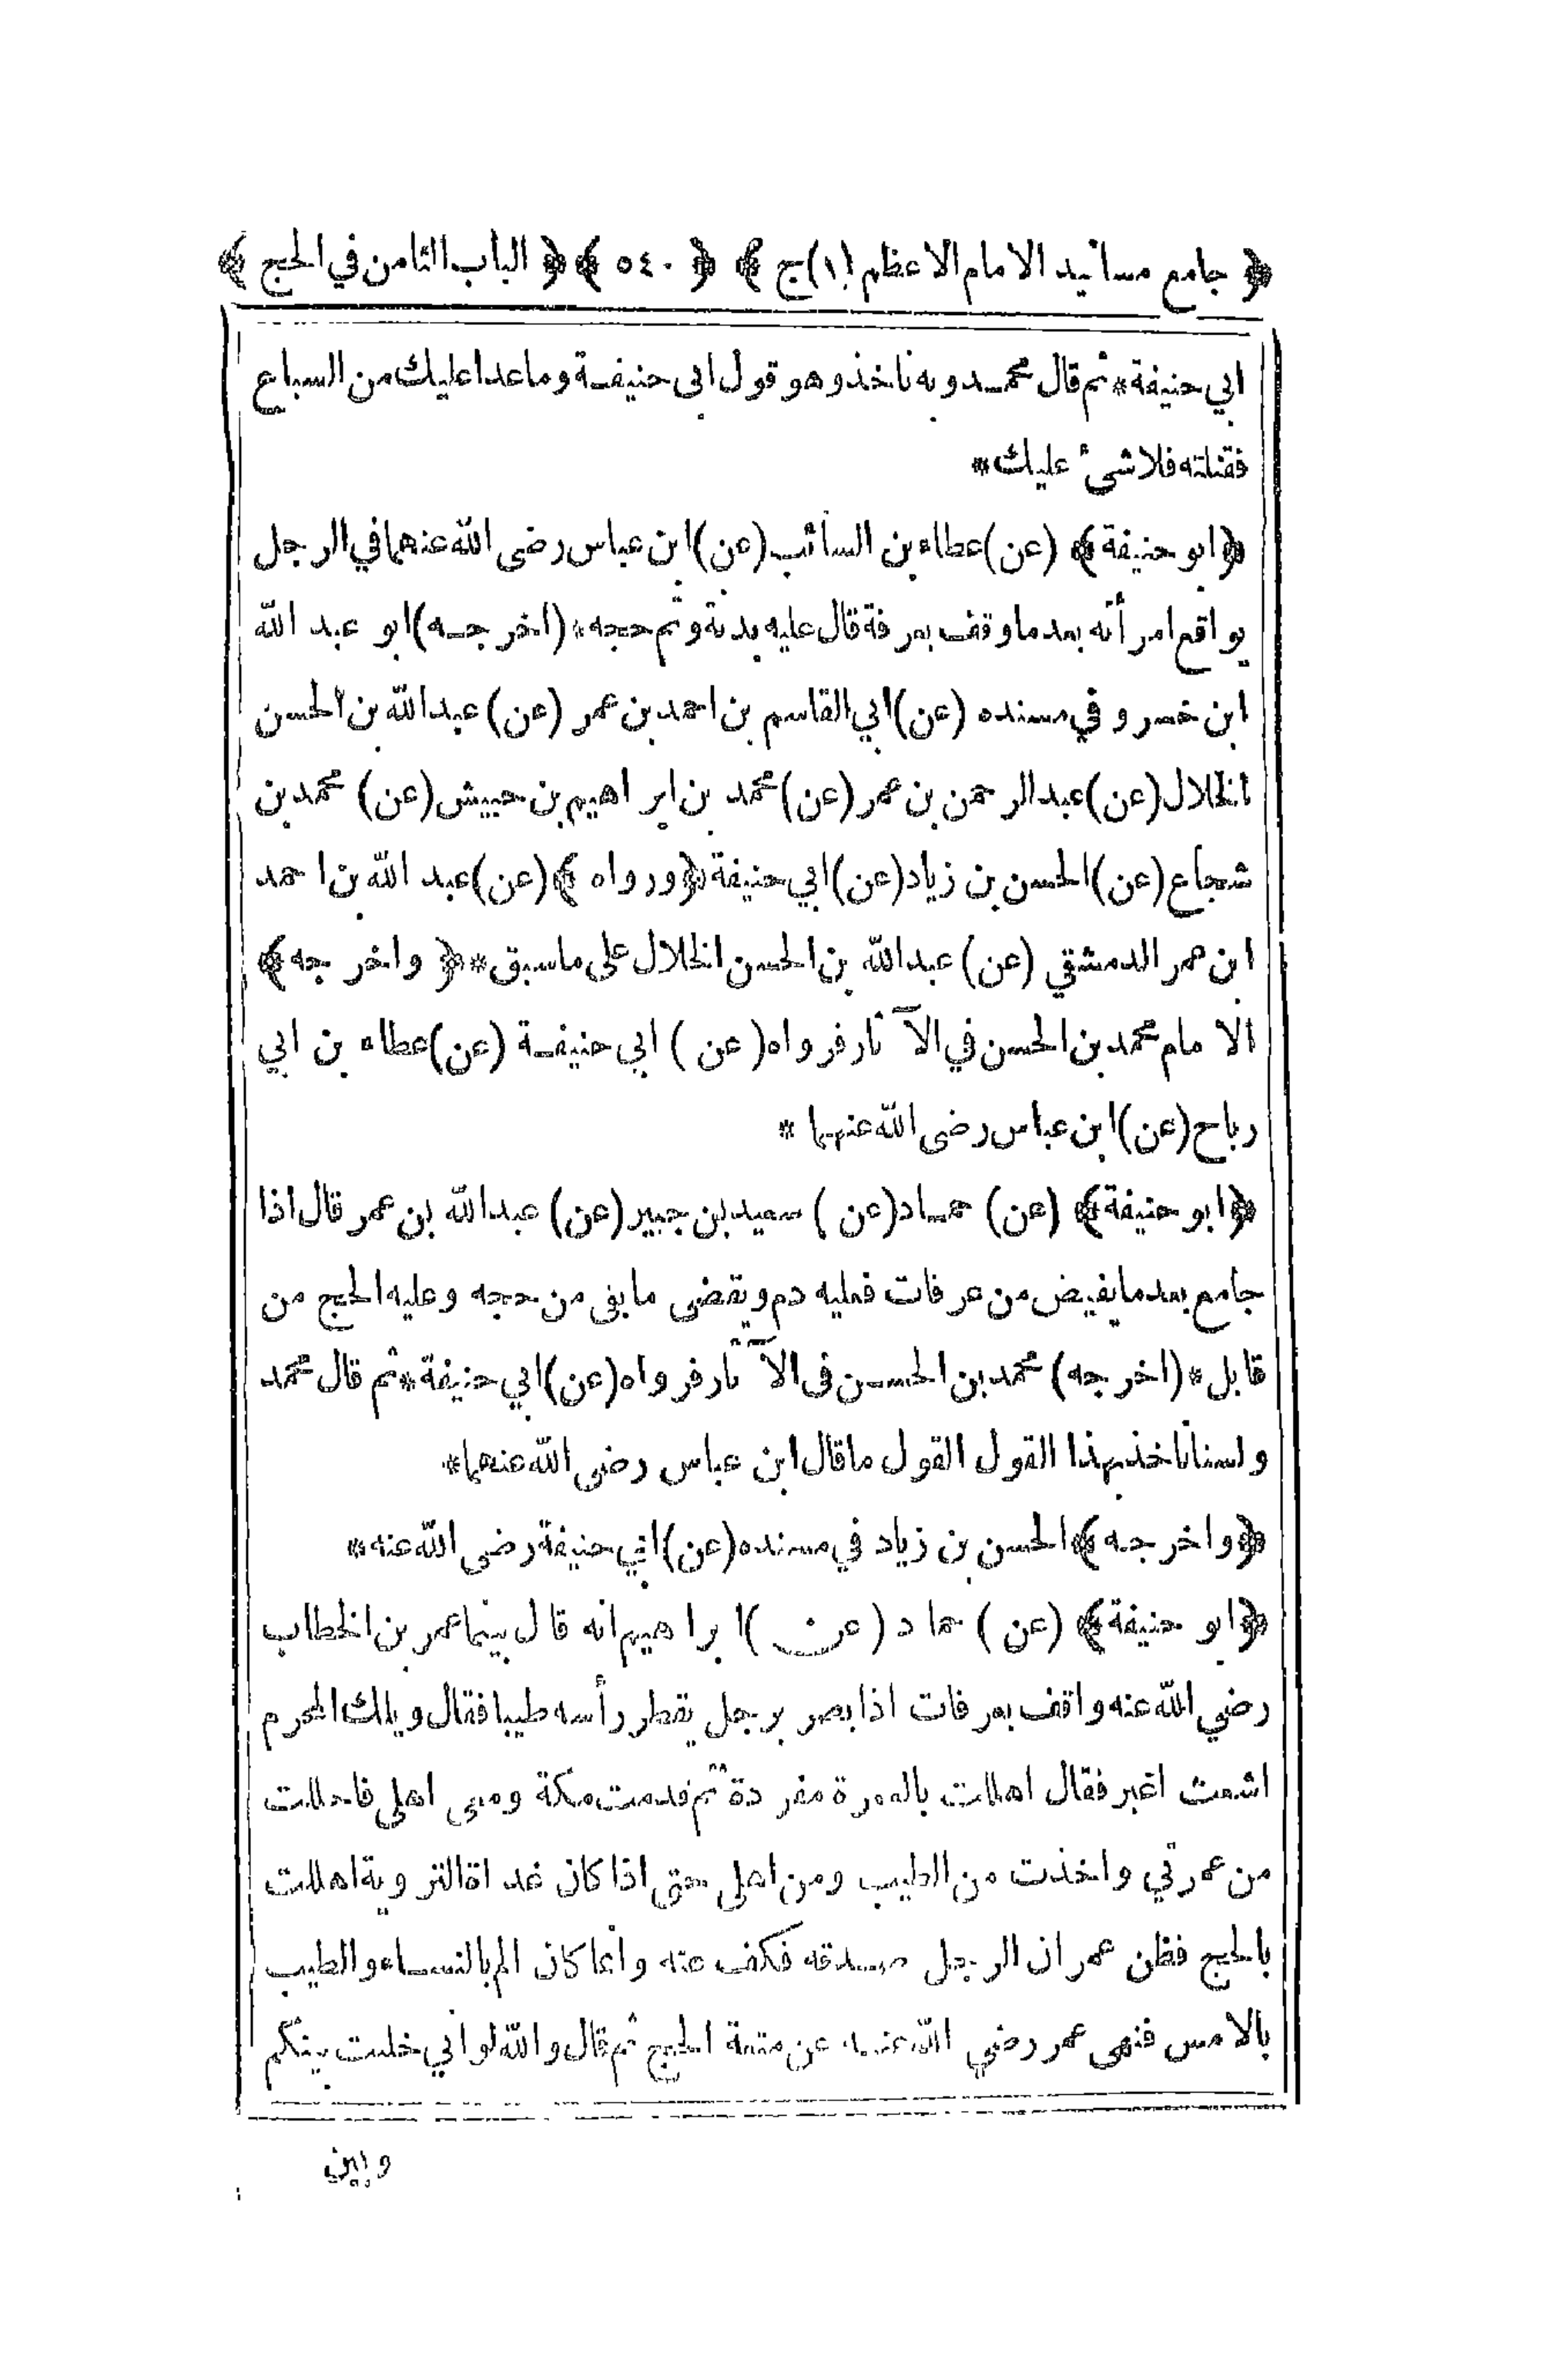 ﴿ جامع مسانيد الامام الاعظم (١) ج ﴾ ﴿ ٥٤٠ ﴾ ﴿ الباب الثامن في الحج ﴾
ابي حنيفة * ثم قال محمد وبه ناخذ وهو قول ابى حنيفة وما عدا عليك من السباع
فقتلته فلا شئ عليك *
﴿ ابو حنيفة ﴾ (عن) عطاء بن السائب (عن) ابن عباس رضى الله عنهما في الرجل
يواقع امرأته بعد ما وقف بعرفة قال عليه بدنة وتم حجه * (اخرجه) ابو عبد الله
ابن خسرو في مسنده (عن) ابي القاسم بن احمد بن عمر (عن) عبد الله بن الحسن
الخلال (عن) عبد الرحمن بن عمر (عن) محمد بن ابراهيم بن حبيش (عن) محمد بن
شجاع (عن) الحسن بن زياد (عن) ابي حنيفة ﴿ ورواه ﴾ (عن) عبد الله بن احمد
ابن عمر الدمشقي (عن) عبد الله بن الحسن الخلال على ما سبق * ﴿ واخرجه ﴾
الامام محمد بن الحسن في الآثار فرواه (عن) ابي حنيفة (عن) عطاء بن ابي
رباح (عن) ابن عباس رضى الله عنهما *
﴿ ابو حنيفة ﴾ (عن) حماد (عن) سعيد بن جبير (عن) عبد الله بن عمر قال اذا
جامع بعد ما يفيض من عرفات فعليه دم ويقضى ما بقى من حجه وعليه الحج من
قابل * (اخرجه) محمد بن الحسن فى الآثار فرواه (عن) ابي حنيفة * ثم قال محمد
ولسنا ناخذ بهذا القول القول ما قال ابن عباس رضى الله عنهما *
﴿ واخرجه ﴾ الحسن بن زياد في مسنده (عن) ابي حنيفة رضى الله عنه *
﴿ ابو حنيفة ﴾ (عن) حماد (عن) ابراهيم انه قال بينما عمر بن الخطاب
رضي الله عنه واقف بعرفات اذا بصر برجل يقطر رأسه طيبا فقال ويلك المحرم
اشعث اغبر فقال اهللت بالعمرة مفردة ثم قدمت مكة ومعى اهلى فاحللت
من عمرتي واخذت من الطيب ومن اهلى حتى اذا كان غداة التروية اهللت
بالحج فظن عمر ان الرجل صدقه فكف عنه وانما كان الم بالنساء والطيب
بالامس فنهى عمر رضي الله عنه عن متعة الحج ثم قال والله لو اني خليت بينكم
وبين